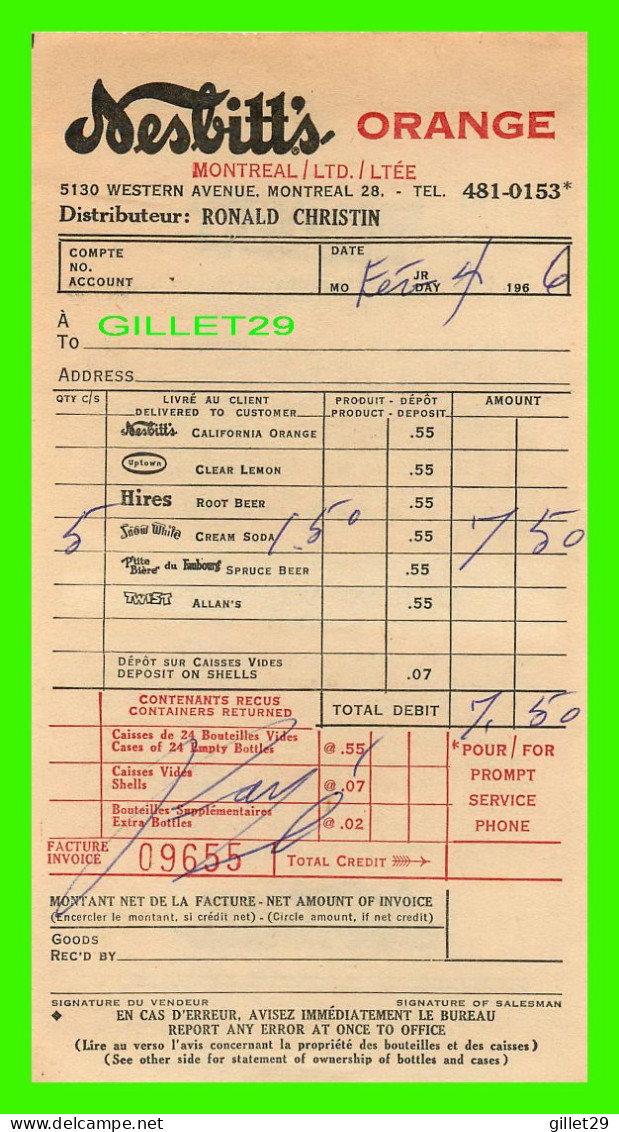 Nesbitt's ORANGE
MONTREAL / LTD. / LTÉE
5130 WESTERN AVENUE, MONTREAL 28, - TEL. 481-0153*
Distributeur: RONALD CHRISTIN
COMPTE NO. ACCOUNT
DATE
MO Fév JR DAY 4 196 6
À
GILLET29
TO
ADDRESS
QTY C/S LIVRÉ AU CLIENT PRODUIT - DÉPÔT AMOUNT
DELIVERED TO CUSTOMER PRODUCT - DEPOSIT
Nesbitt's CALIFORNIA ORANGE .55
Uptown CLEAR LEMON .55
Hires ROOT BEER .55
5 Snow White CREAM SODA 1.50 .55 7 50
P'tite Bière du Faubourg SPRUCE BEER .55
TWIST ALLAN'S .55
DÉPÔT SUR CAISSES VIDES
DEPOSIT ON SHELLS .07
CONTENANTS RECUS
CONTAINERS RETURNED
TOTAL DEBIT 7. 50
Caisses de 24 Bouteilles Vides
Cases of 24 Empty Bottles @ .55
Caisses Vides
Shells @ .07
Bouteilles Supplémentaires
Extra Bottles @ .02
*POUR / FOR
PROMPT
SERVICE
PHONE
FACTURE
INVOICE 09655 TOTAL CREDIT
MONTANT NET DE LA FACTURE - NET AMOUNT OF INVOICE
(Encercler le montant, si crédit net) - (Circle amount, if net credit)
GOODS
REC'D BY
SIGNATURE DU VENDEUR SIGNATURE OF SALESMAN
EN CAS D'ERREUR, AVISEZ IMMÉDIATEMENT LE BUREAU
REPORT ANY ERROR AT ONCE TO OFFICE
(Lire au verso l'avis concernant la propriété des bouteilles et des caisses)
(See other side for statement of ownership of bottles and cases)
gillet29 gillet29